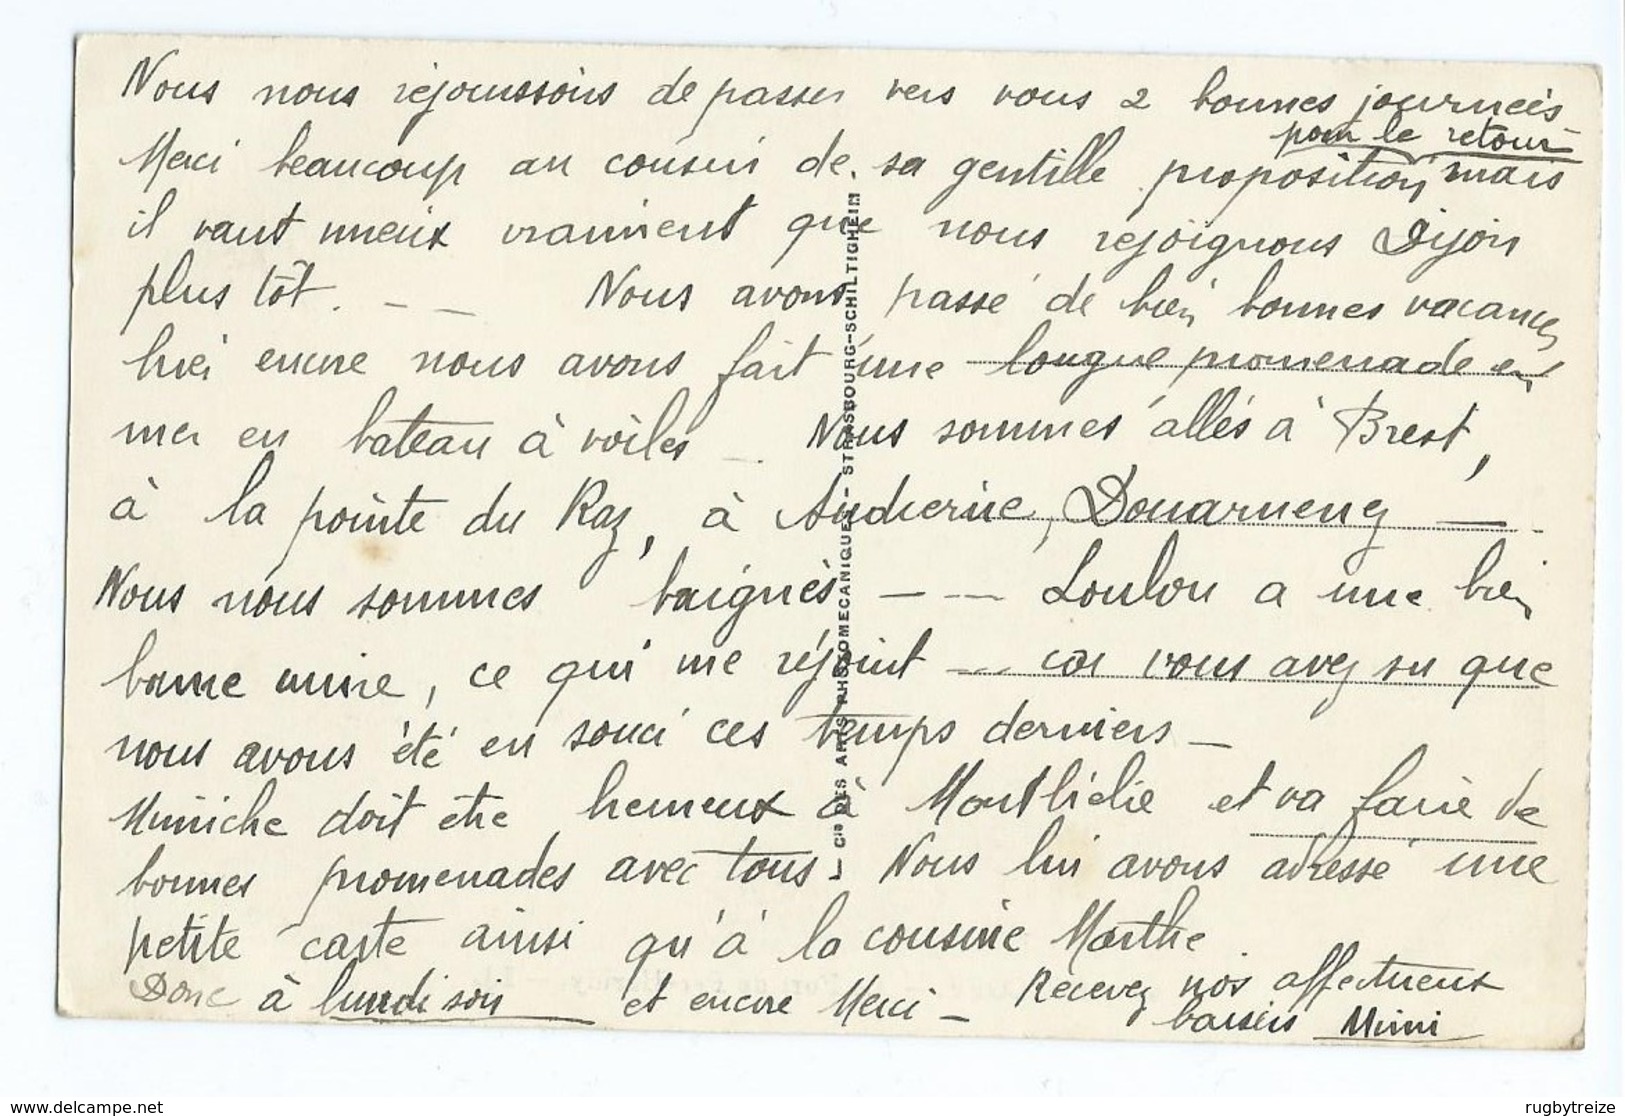 Nous nous réjouissons de passer vers vous 2 bonnes journées
pour le retour
Merci beaucoup au cousin de sa gentille proposition mais
il vaut mieux vraiment que nous rejoignons Dijon
plus tôt. - - Nous avons passé de bien bonnes vacances
hier encore nous avons fait une longue promenade en
mer en bateau à voiles - Nous sommes allés à Brest,
à la pointe du Raz, à Audierne, Douarnenez -
Nous nous sommes baignés - - Loulou a une bien
bonne mine, ce qui me réjouit - car vous avez su que
nous avons été en souci ces temps derniers -
Miniche doit être heureux à Montlhérie et va faire de
bonnes promenades avec tous - Nous lui avons adressé une
petite carte ainsi qu'à la cousine Marthe
Donc à lundi soir et encore Merci - Recevez nos affectueux
baisers Mimi
Cie DES ARTS PHOTOMECANIQUES - STRASBOURG-SCHILTIGHEIM
www.delcampe.net
rugbytreize